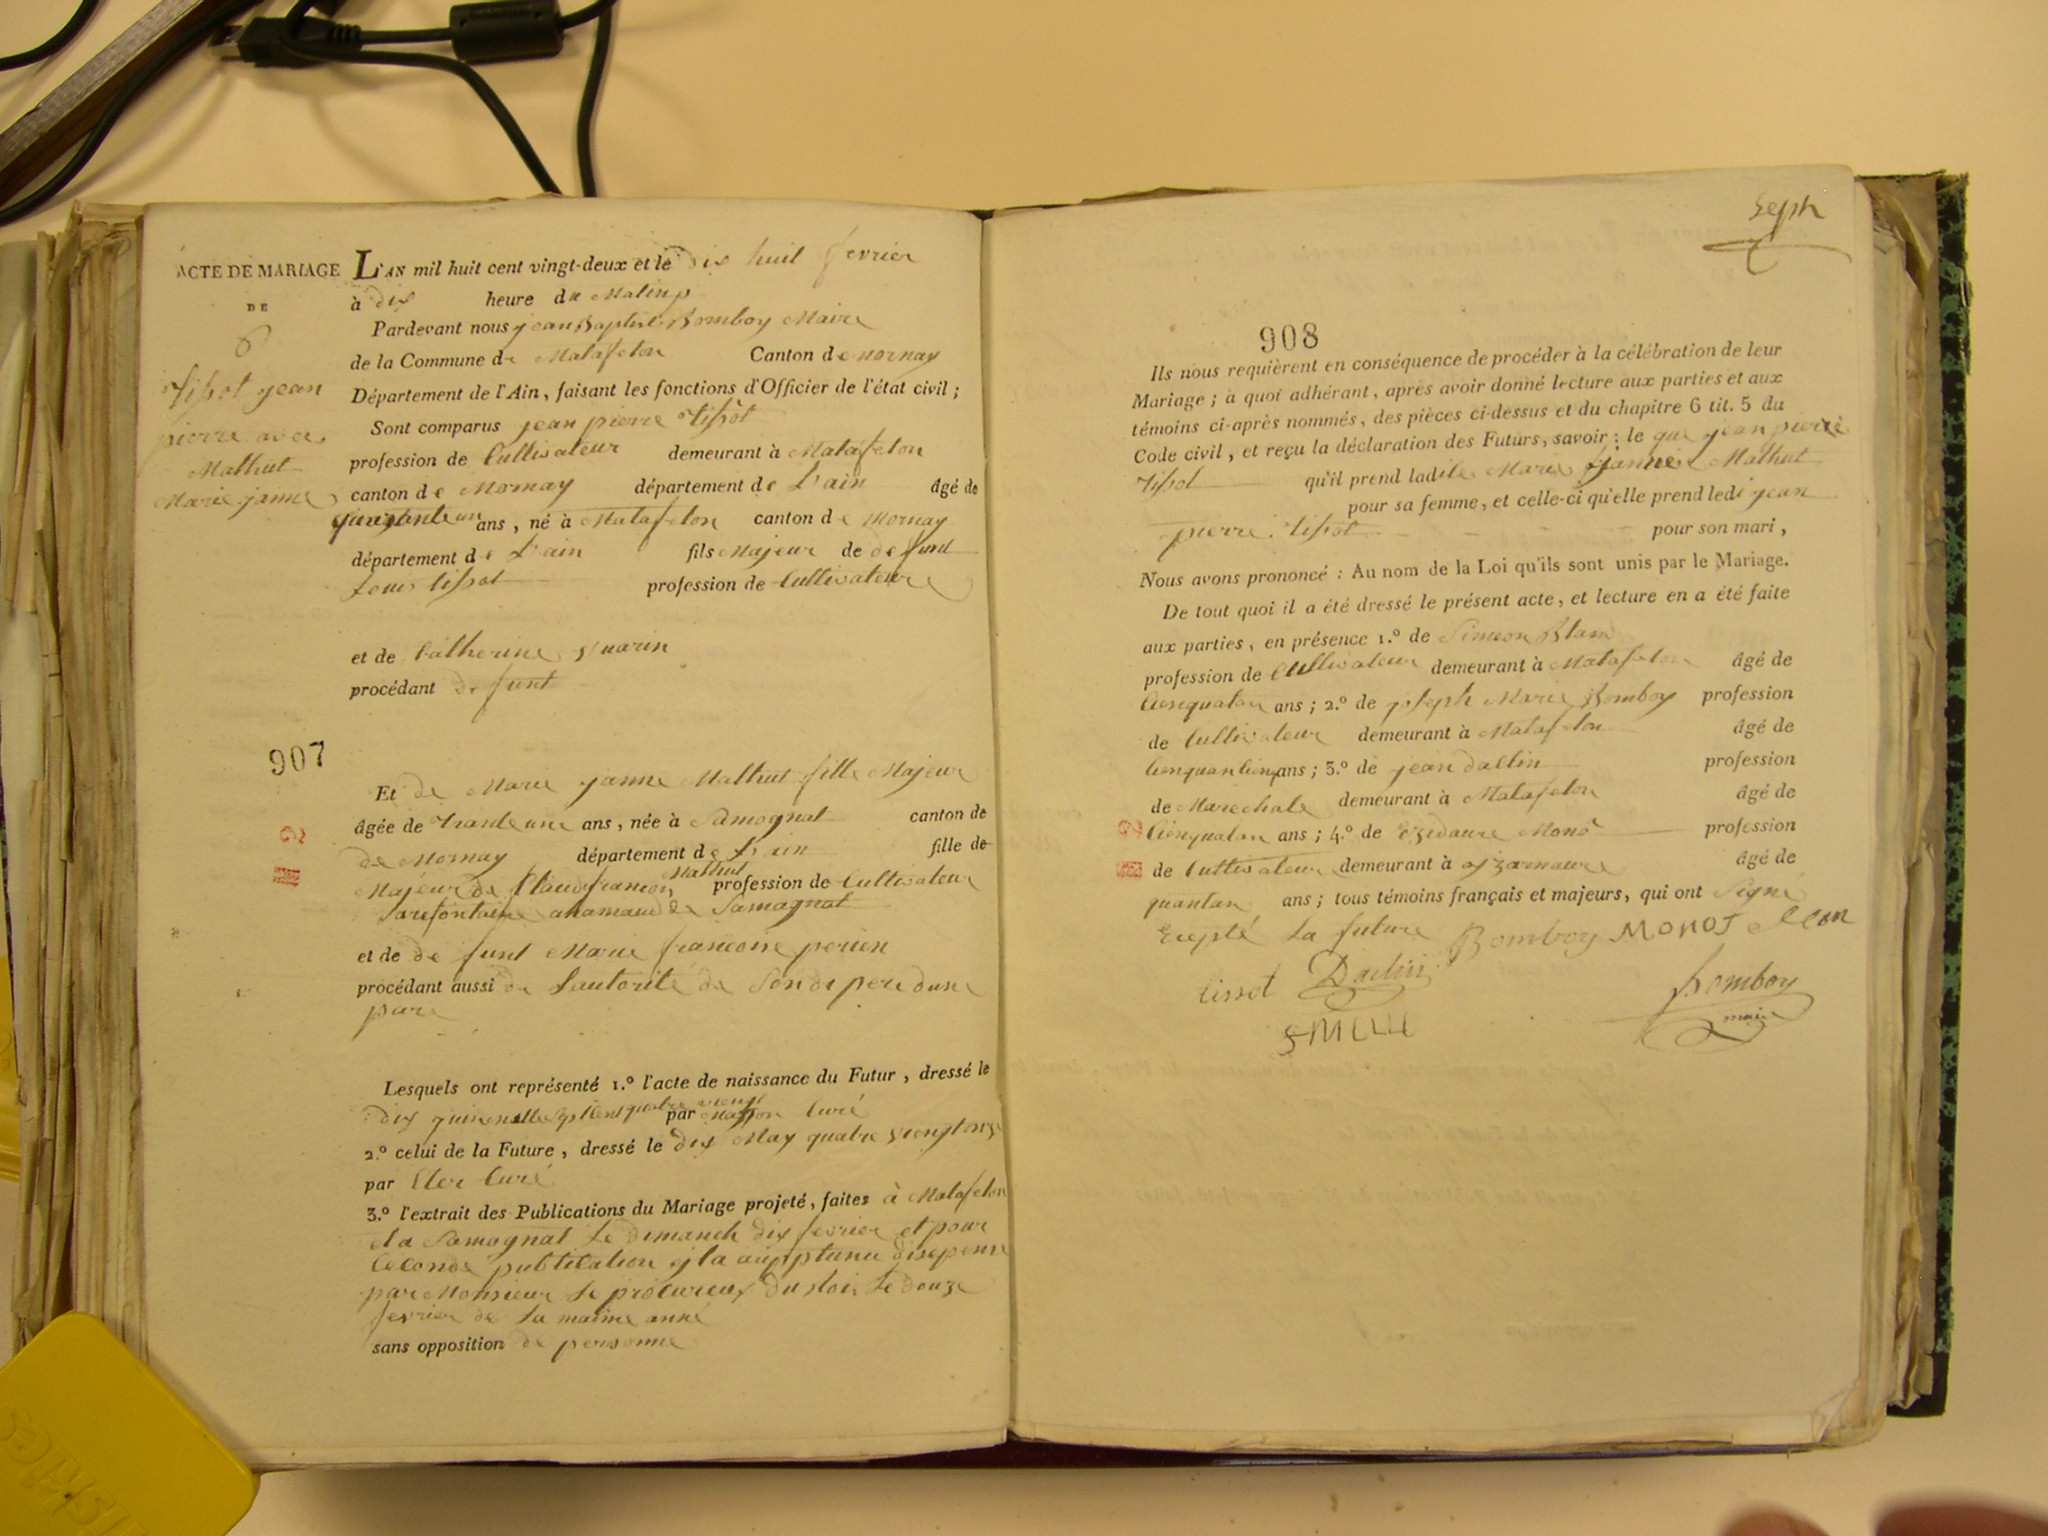 ACTE DE MARIAGE
DE
6
tissot jean
pierre avec
Mathut
Marie janne
L'AN mil huit cent vingt-deux et le dix huit fevrier
à dix heure du Matin
Pardevant nous jean Baptiste Bomboy Maire
de la Commune de Matafelon Canton de mornay
Département de l'Ain, faisant les fonctions d'Officier de l'état civil;
Sont comparus jean pierre tissot
profession de Cultivateur demeurant à Matafelon
canton de Mornay département de L'ain âgé de
ans, né à Matafelon canton de Mornay
département de L'ain fils Majeur de defunt
Louis tissot profession de Cultivateur
et de Catherine
procédant defunt
907
Et de Marie janne Mathut fille Majeur
âgée de trante une ans, née à Samognat canton de
de Mornay département de L'ain fille de
Mathut
Majeur de Claude francois profession de Cultivateur
de Samognat
et de defunt Marie francoise
procédant aussi de Lautorité de Son di pere
Lesquels ont représenté 1.º l'acte de naissance du Futur, dressé le
dix par Curé
2.º celui de la Future, dressé le dix May quatre viengtonze
par Curé
3.º l'extrait des Publications du Mariage projeté, faites à Matafelon
et a Samognat Le dimanch dix fevrier et pour
publication
par Monsieur Le procureur du Roi Le douze
fevrier de La maime anné
sans opposition de personne
Seph
908
Ils nous requièrent en conséquence de procéder à la célébration de leur
Mariage; à quoi adhérant, après avoir donné lecture aux parties et aux
témoins ci-après nommés, des pièces ci-dessus et du chapitre 6 tit. 5 du
Code civil, et reçu la déclaration des Futurs, savoir: le que jean pierre
tissot qu'il prend ladite Marie janne Mathut
pour sa femme, et celle-ci qu'elle prend ledi jean
pierre tissot pour son mari,
Nous avons prononcé: Au nom de la Loi qu'ils sont unis par le Mariage.
De tout quoi il a été dressé le présent acte, et lecture en a été faite
aux parties, en présence 1.º de Simeon
profession de Cultivateur demeurant à Matafelon âgé de
ans; 2.º de joseph Marie Bomboy profession
de Cultivateur demeurant à Matafelon âgé de
ans; 3.º de jean daclin profession
de Marechale demeurant à Matafelon âgé de
ans; 4.º de Monô profession
de Cultivateur demeurant à âgé de
ans; tous témoins français et majeurs, qui ont Signé
La future Bomboy MONOT
tissot Daclin Bomboy
maire